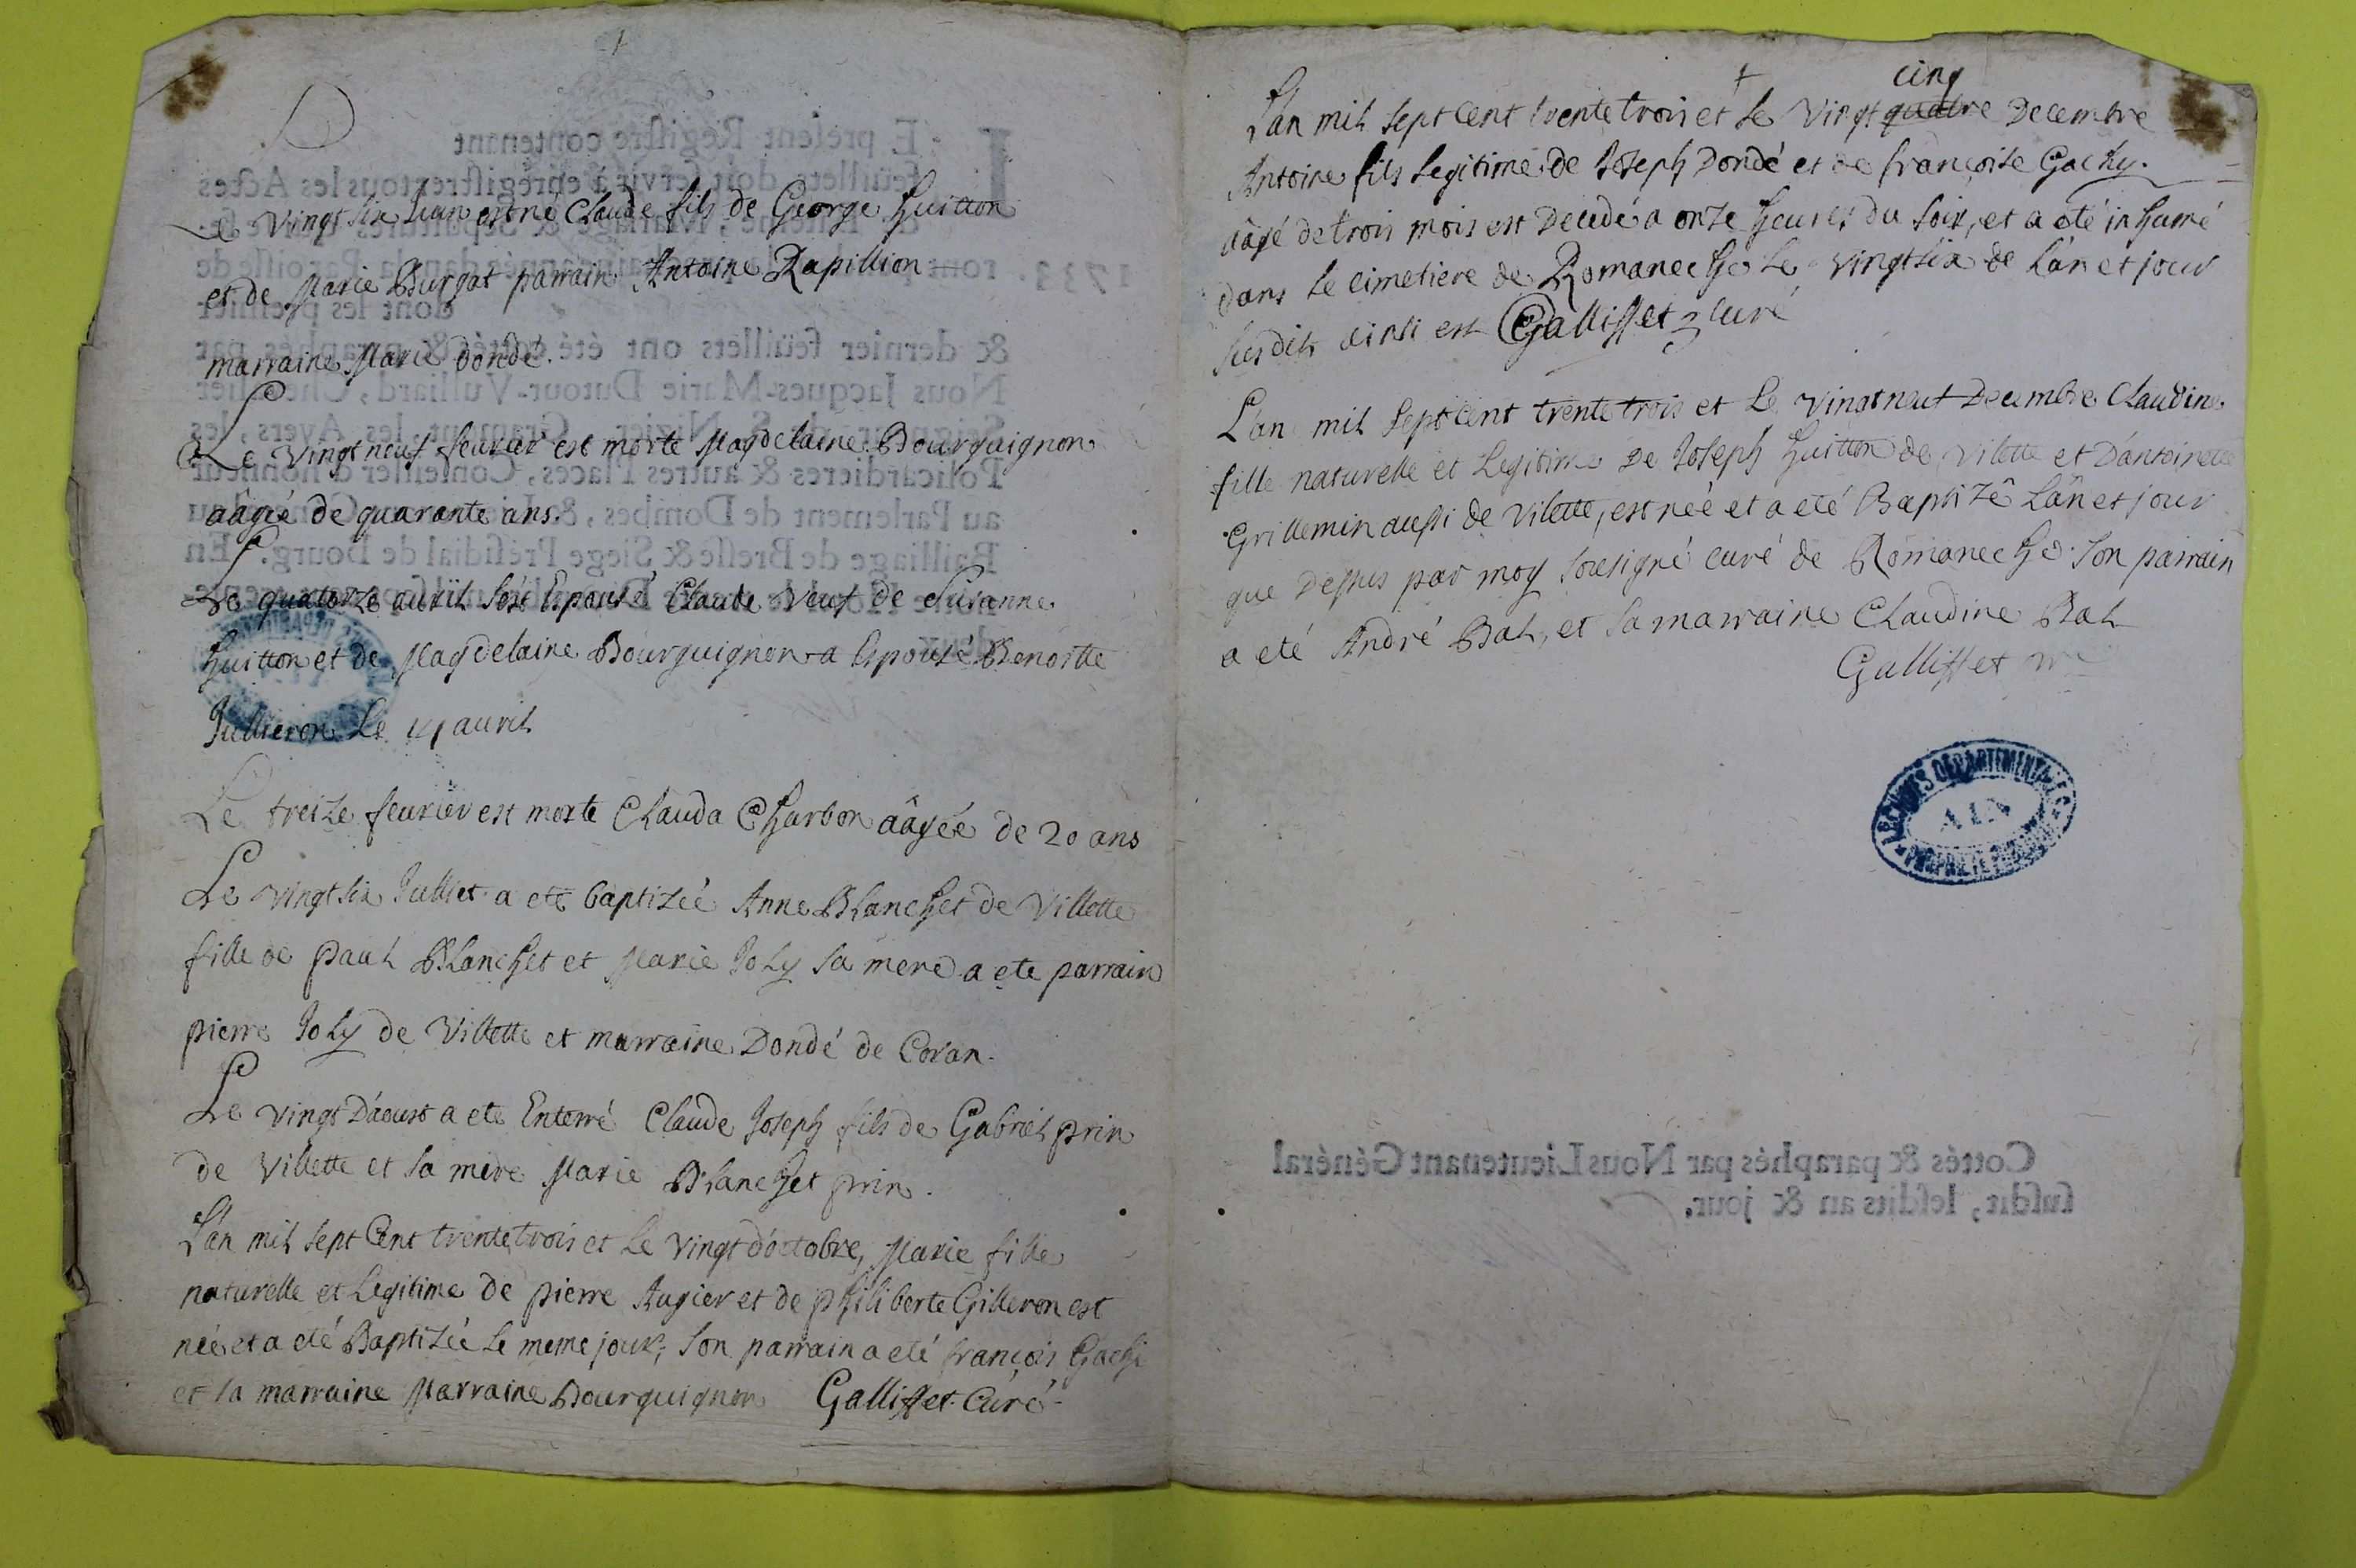 Le vingt six Juin est né Claude fils de George Guitton
et de Marie Burgat parrain Antoine Rapillion
marraine Marie dondé.
Le vingt neuf feurier est morte Magdelaine Bourguignon
aâgée de quarante ans.
Le quatorze auril Espousé Claude veuf de Susanne
Guitton et de Magdelaine Bourguignon a Espousé Benoitte
Jullieron Le 14 auril
Le treize feurier est morte Clauda Charbon aâgée de 20 ans
Le vingt six Julliet a eté baptizée Anne Blanchet de Villette
fille de paul Blanchet et Marie Joly sa mere a ete parrain
pierre Joly de Villette et marraine Dondé de Coran.
Le vingt D'aoust a ete Enterré Claude Joseph fils de Gabriel prin
de Villette et sa mere Marie Blanchet prin.
L'an mil sept Cent trente trois et le vingt d'octobre, Marie fille
naturelle et Legitime de pierre Augier et de philiberte Gilleron est
née et a eté Baptizée le meme jour; son parrain a eté françois Gachi
et la marraine Marraine Bourguignon Galliffet Curé
cinq
L'an mil sept cent trente trois et le vingt quatre Decembre
Antoine fils legitime de Joseph Dondé et de françoise Gachy.
aâgé de trois mois est Decedé a onze heures du soir, et a été inhumé
dans le cimetiere de Romaneche le vingt six de l'an et jour
susdits ainsi est Galliffet curé
L'an mil sept cent trente trois et Le vingt neuf Decembre Claudine
fille naturelle et Legitime De Joseph Guitton de Vilette et D'antoinette
Grillemin aussi de Vilette, est née et a eté Baptizê L'an et jour
que Dessus par moy sousigné curé de Romaneche son parrain
a eté André Bal, et sa marraine Claudine Bal
Galliffet
ARCHIVES DEPARTEMENTALES
AIN
PROPRIÉTÉ PUBLIQUE